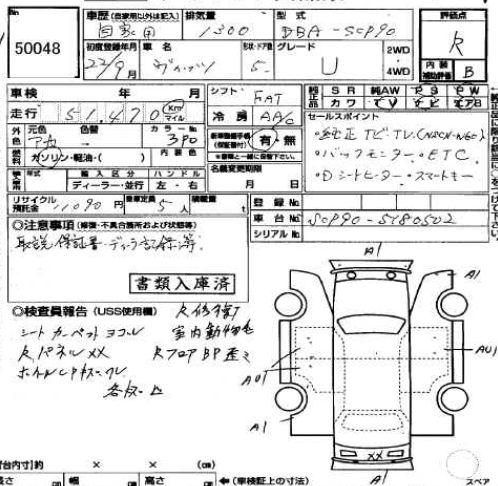 No.
50048
車歴(自家用以外は記入) 自家用
排気量 1300
型式 DBA-SCP90
初度登録年月 22/9月
車名 ヴィッツ
形状・ドア数 5
グレード U
2WD
4WD
評価点 R
内装補助評価 B
車検 年 月
走行 51,470 Km マイル
シフト FAT
冷房 AAC
純正品 SR 純AW PS PW
カワ TV ナビ エアB
外色 元色 アカ 色替 カラーNo. 3P0
内装色
燃料 ガソリン・軽油・( )
有・無
セールスポイント
・純正ナビTV(NDCN-W60)
・バックモニター・ETC
・Dシートヒーター・スマートキー
名義変更期限 月 日
輸入区分 ディーラー・並行
ハンドル 左・右
リサイクル預託金 11,090円
乗車定員 5人
積載量 t
登録No.
車台No. SCP90-5180502
シリアルNo.
◎注意事項(修復・不具合箇所および状態等)
取説 保証書
書類入庫済
◎検査員報告(USS使用欄)
シート カーペット ヨゴレ
室内動物毛
RパネルXX
RフロアBP歪ミ
A1
A1
AU1
AU1
A1
XX
A1
台内寸)約 × × (cm)
長さ cm 幅 cm 高さ cm ←(車検証上の寸法)
スペア